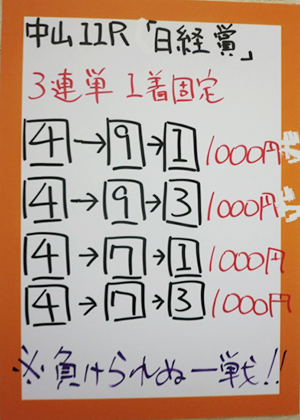 中山11R「日経賞」
3連単 1着固定
4→9→1 1000円
4→9→3 1000円
4→7→1 1000円
4→7→3 1000円
※負けられぬ一戦!!